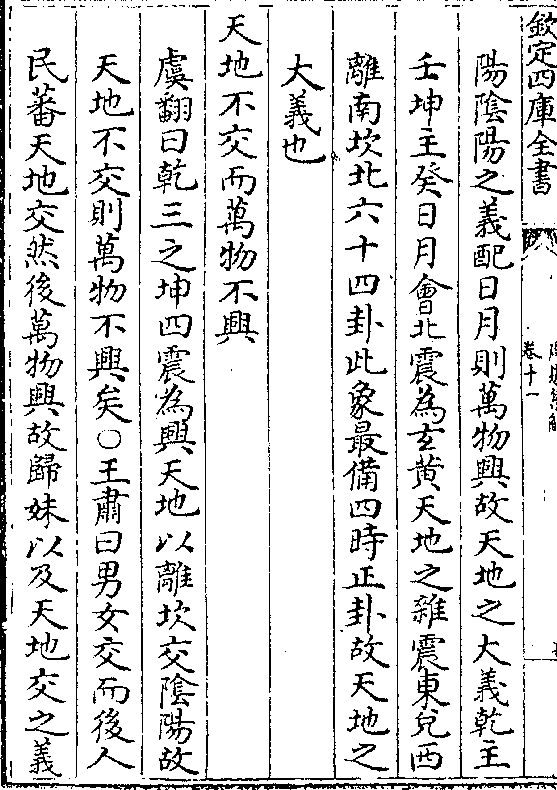 欽定四庫全書
卷十一
陽陰陽之義配日月則萬物興故天地之大義乾主
壬坤主癸日月會北震為玄黃天地之雜震東兌西
離南坎北六十四卦此象最備四時正卦故天地之
大義也
天地不交而萬物不興
虞翻曰乾三之坤四震為興天地以離坎交陰陽故
天地不交則萬物不興矣○王肅曰男女交而後人
民蕃天地交然後萬物興故歸妹以及天地交之義